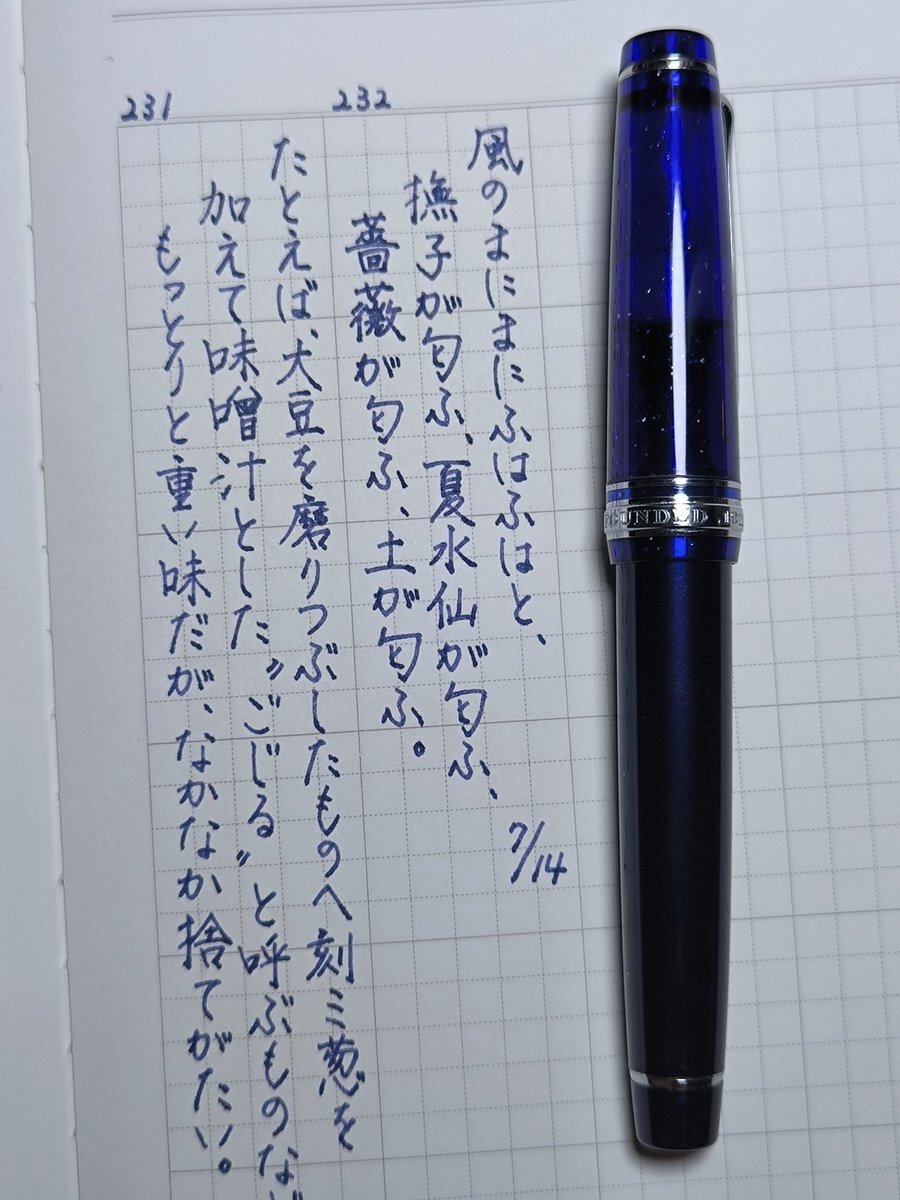 231
たとえば、大豆を磨りつぶしたものへ刻ミ葱を
加えて味噌汁とした〝ごじる〟と呼ぶものな
もっとりと重い味だが、なかなか捨てがたい。
232
風のまにまにふはふはと、
撫子が匂ふ、夏水仙が匂ふ、
薔薇が匂ふ、土が匂ふ。
7/14
FOUNDED